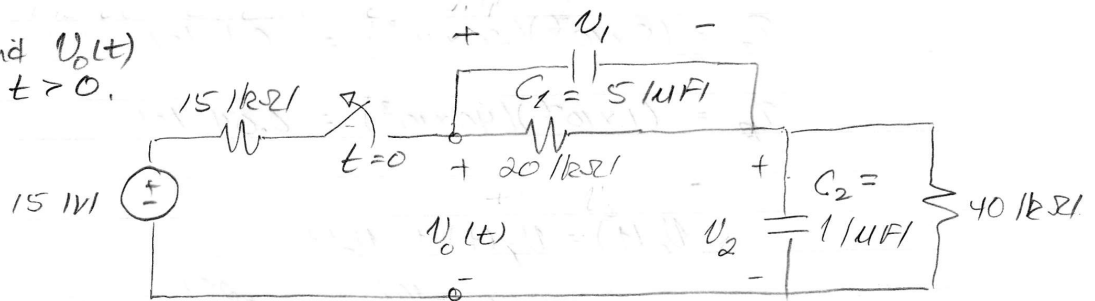 nd V₀(t)
t > 0.
+ V₁ -
C₁ = 5 |μF|
15 |kΩ|
t=0
+ 20 |kΩ| +
15 |V|
+
-
V₀(t)
V₂
C₂ =
1 |μF|
40 |kΩ|
- -